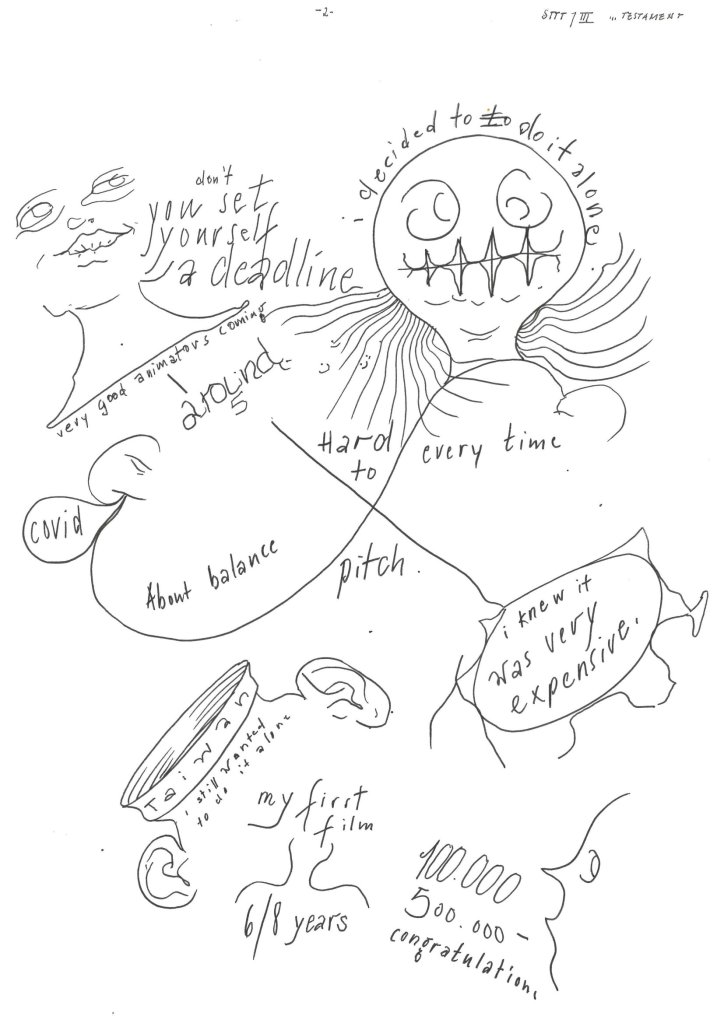 -2-
STTT / III ... TESTAMENT
i decided to to do it alone
don't
you set
yourself
a deadline
very good animators coming
around
5
Hard
to
pitch.
every time
covid
About balance
i knew it
was very
expensive.
Taiwan
i still wanted
to do it alone
my first
film
6/8 years
100.000
500.000 -
congratulation,